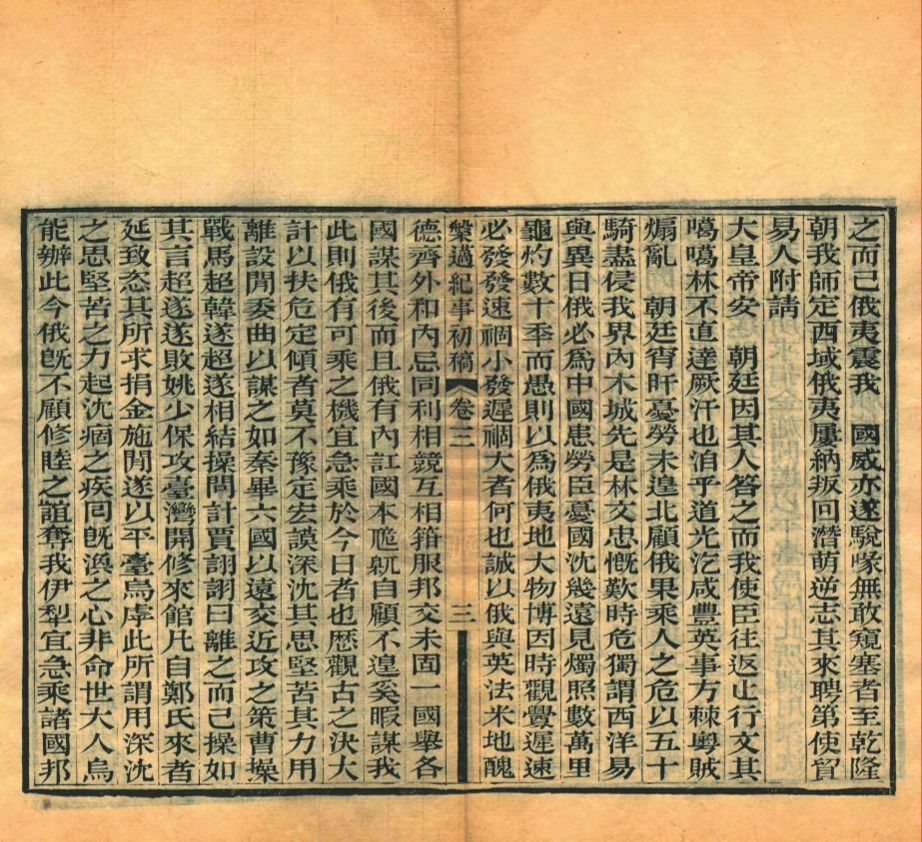 之而已俄夷震我　國威亦遂駾喙無敢窺塞者至乾隆
朝我師定西域俄夷屢納叛回潛萌逆志其來聘第使貿
易人附請
大皇帝安　朝廷因其人答之而我使臣往返止行文其
噶噶林不直達厥汗也洎乎道光訖咸豐英事方棘粵賊
煽亂　朝廷宵旰憂勞未遑北顧俄果乘人之危以五十
騎盡侵我界內木城先是林文忠慨歎時危獨謂西洋易
與異日俄必為中國患勞臣憂國沈幾遠見燭照數萬里
龜灼數十季而愚則以為俄夷地大物博因時觀釁遲速
必發發速禍小發遲禍大者何也誠以俄與英法米地醜
槃薖紀事初稿　卷三　三
德齊外和內忌同利相競互相猎服邦交未固一國舉各
國謀其後而且俄有內訌國本脆臲自顧不遑奚暇謀我
此則俄有可乘之機宜急乘於今日者也歷觀古之決大
計以扶危定傾者莫不豫定宏謨深沈其思堅苦其力用
離設閒委曲以謀之如秦畢六國以遠交近攻之策曹操
戰馬超韓遂超遂相結操間計賈詡詡曰離之而已操如
其言超遂遂敗姚少保攻臺灣開修來館凡自鄭氏來者
延致恣其所求捐金施閒遂以平臺烏虖此所謂用深沈
之思堅苦之力起沈痼之疾回旣渙之心非命世大人烏
能辦此今俄旣不顧修睦之誼奪我伊犁宜急乘諸國邦